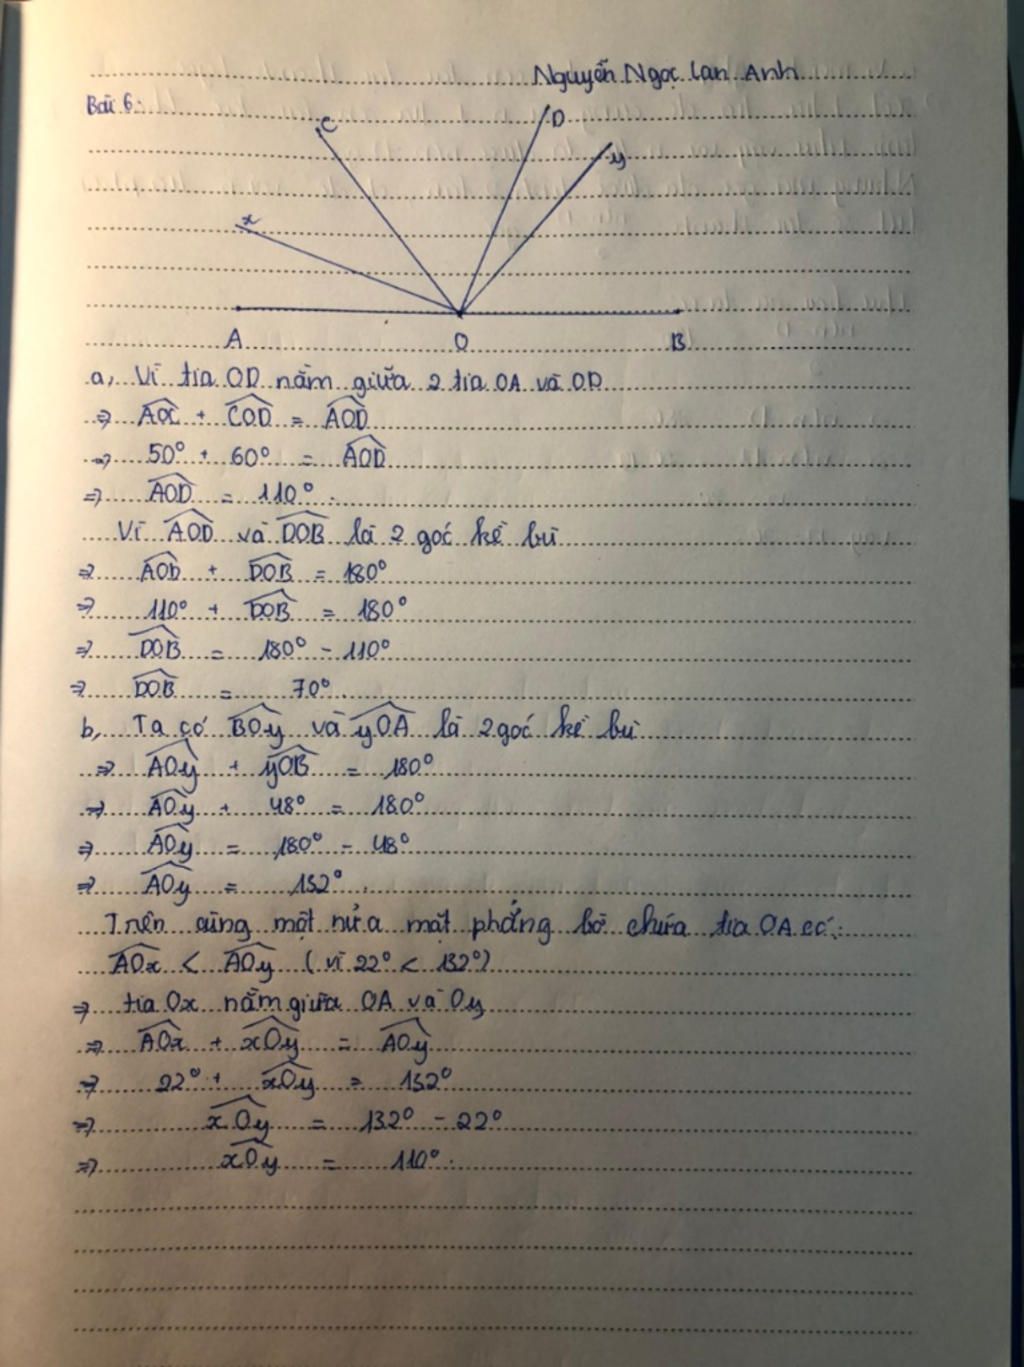 Nguyễn Ngọc Lan Anh
Bài 6:
C
D
y
x
A O B
a, Vì tia OD nằm giữa 2 tia OA và OD
⇒ AOC + COD = AOD
⇒ 50° + 60° = AOD
⇒ AOD = 110°.
Vì AOD và DOB là 2 góc kề bù
⇒ AOD + DOB = 180°
⇒ 110° + DOB = 180°
⇒ DOB = 180° - 110°
⇒ DOB = 70°.
b, Ta có BOy và yOA là 2 góc kề bù
⇒ AOy + yOB = 180°
⇒ AOy + 48° = 180°
⇒ AOy = 180° - 48°
⇒ AOy = 132°.
Trên cùng một nửa mặt phẳng bờ chứa tia OA có:
AOx < AOy (vì 22° < 132°)
⇒ tia Ox nằm giữa OA và Oy
⇒ AOx + xOy = AOy
⇒ 22° + xOy = 132°
⇒ xOy = 132° - 22°
⇒ xOy = 110°.